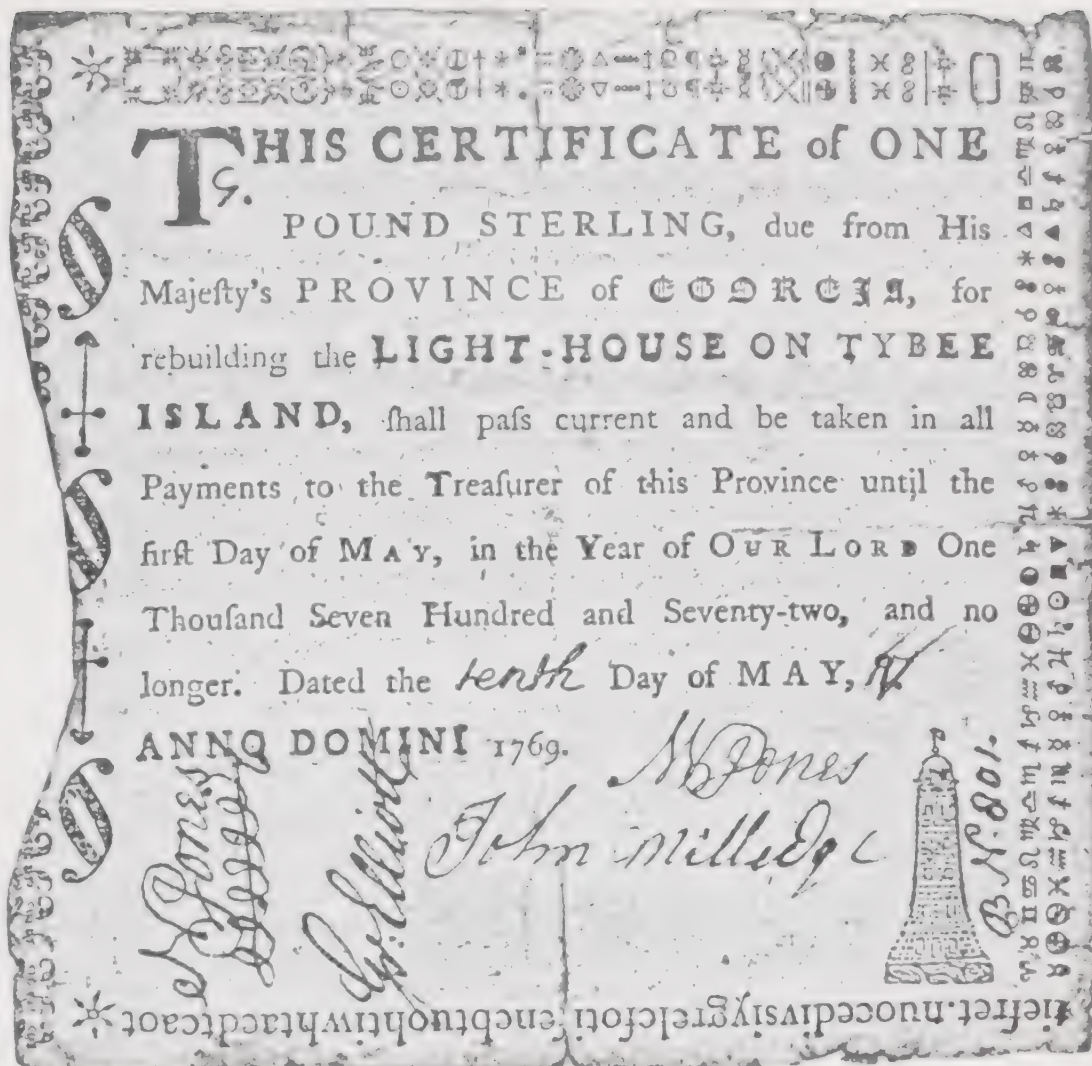 THIS CERTIFICATE of ONE
G.
POUND STERLING, due from His
Majeſty's PROVINCE of GEORGIA, for
rebuilding the LIGHT-HOUSE ON TYBEE
ISLAND, ſhall paſs current and be taken in all
Payments to the Treaſurer of this Province until the
firſt Day of MAY, in the Year of OUR LORD One
Thouſand Seven Hundred and Seventy-two, and no
longer. Dated the tenth Day of MAY,
ANNO DOMINI 1769.
N Jones
John Milledge
Jones
Elliott
B N. 801.